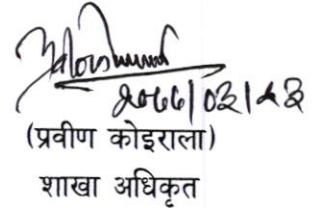 २०७७|०३|२३
(प्रवीण कोइराला)
शाखा अधिकृत